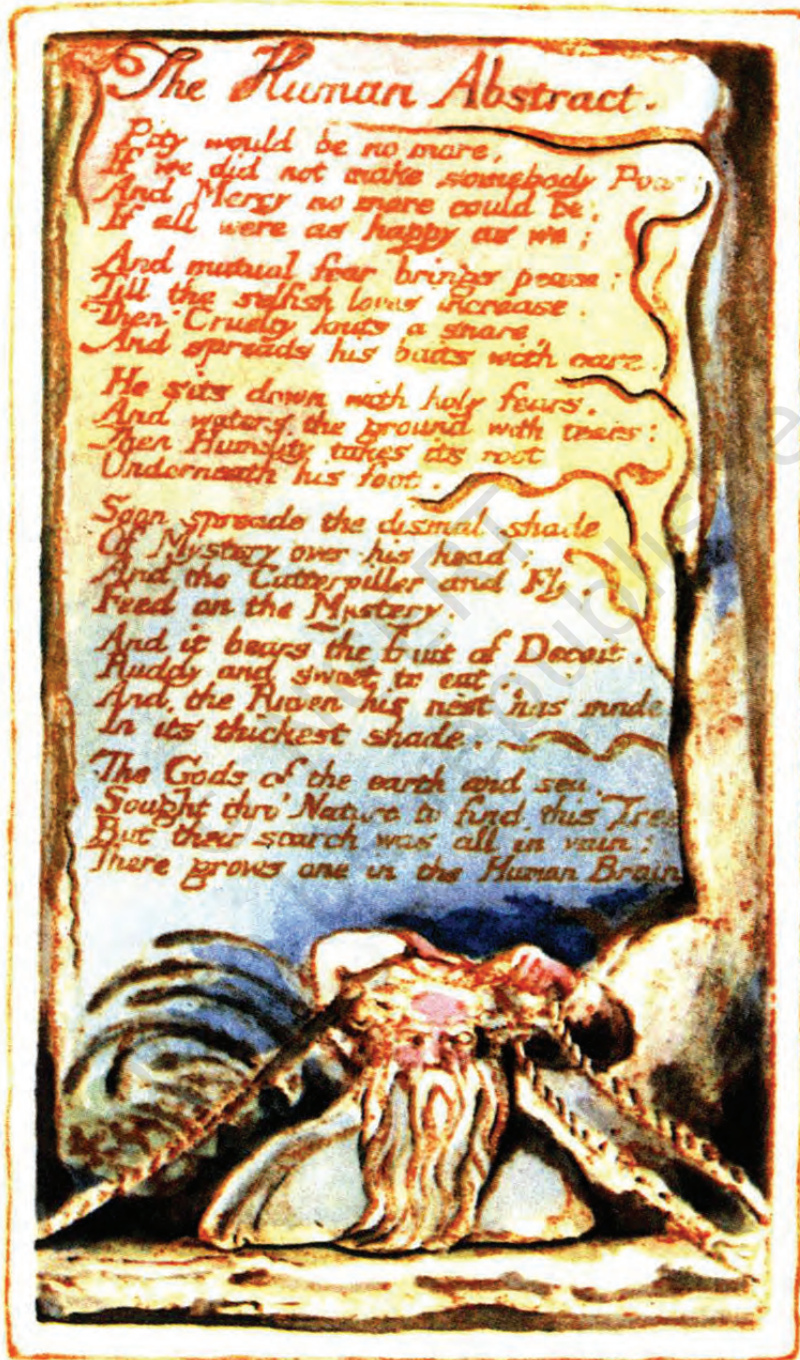 The Human Abstract.
Pity would be no more,
If we did not make somebody Poor:
And Mercy no more could be,
If all were as happy as we;
And mutual fear brings peace:
Till the selfish loves increase.
Then Cruelty knits a snare
And spreads his baits with care.
He sits down with holy fears,
And waters the ground with tears:
Then Humility takes its root
Underneath his foot.
Soon spreads the dismal shade
Of Mystery over his head;
And the Catterpiller and Fly,
Feed on the Mystery.
And it bears the fruit of Deceit,
Ruddy and sweet to eat
And the Raven his nest has made
In its thickest shade.
The Gods of the earth and sea,
Sought thro' Nature to find this Tree
But their search was all in vain;
There grows one in the Human Brain